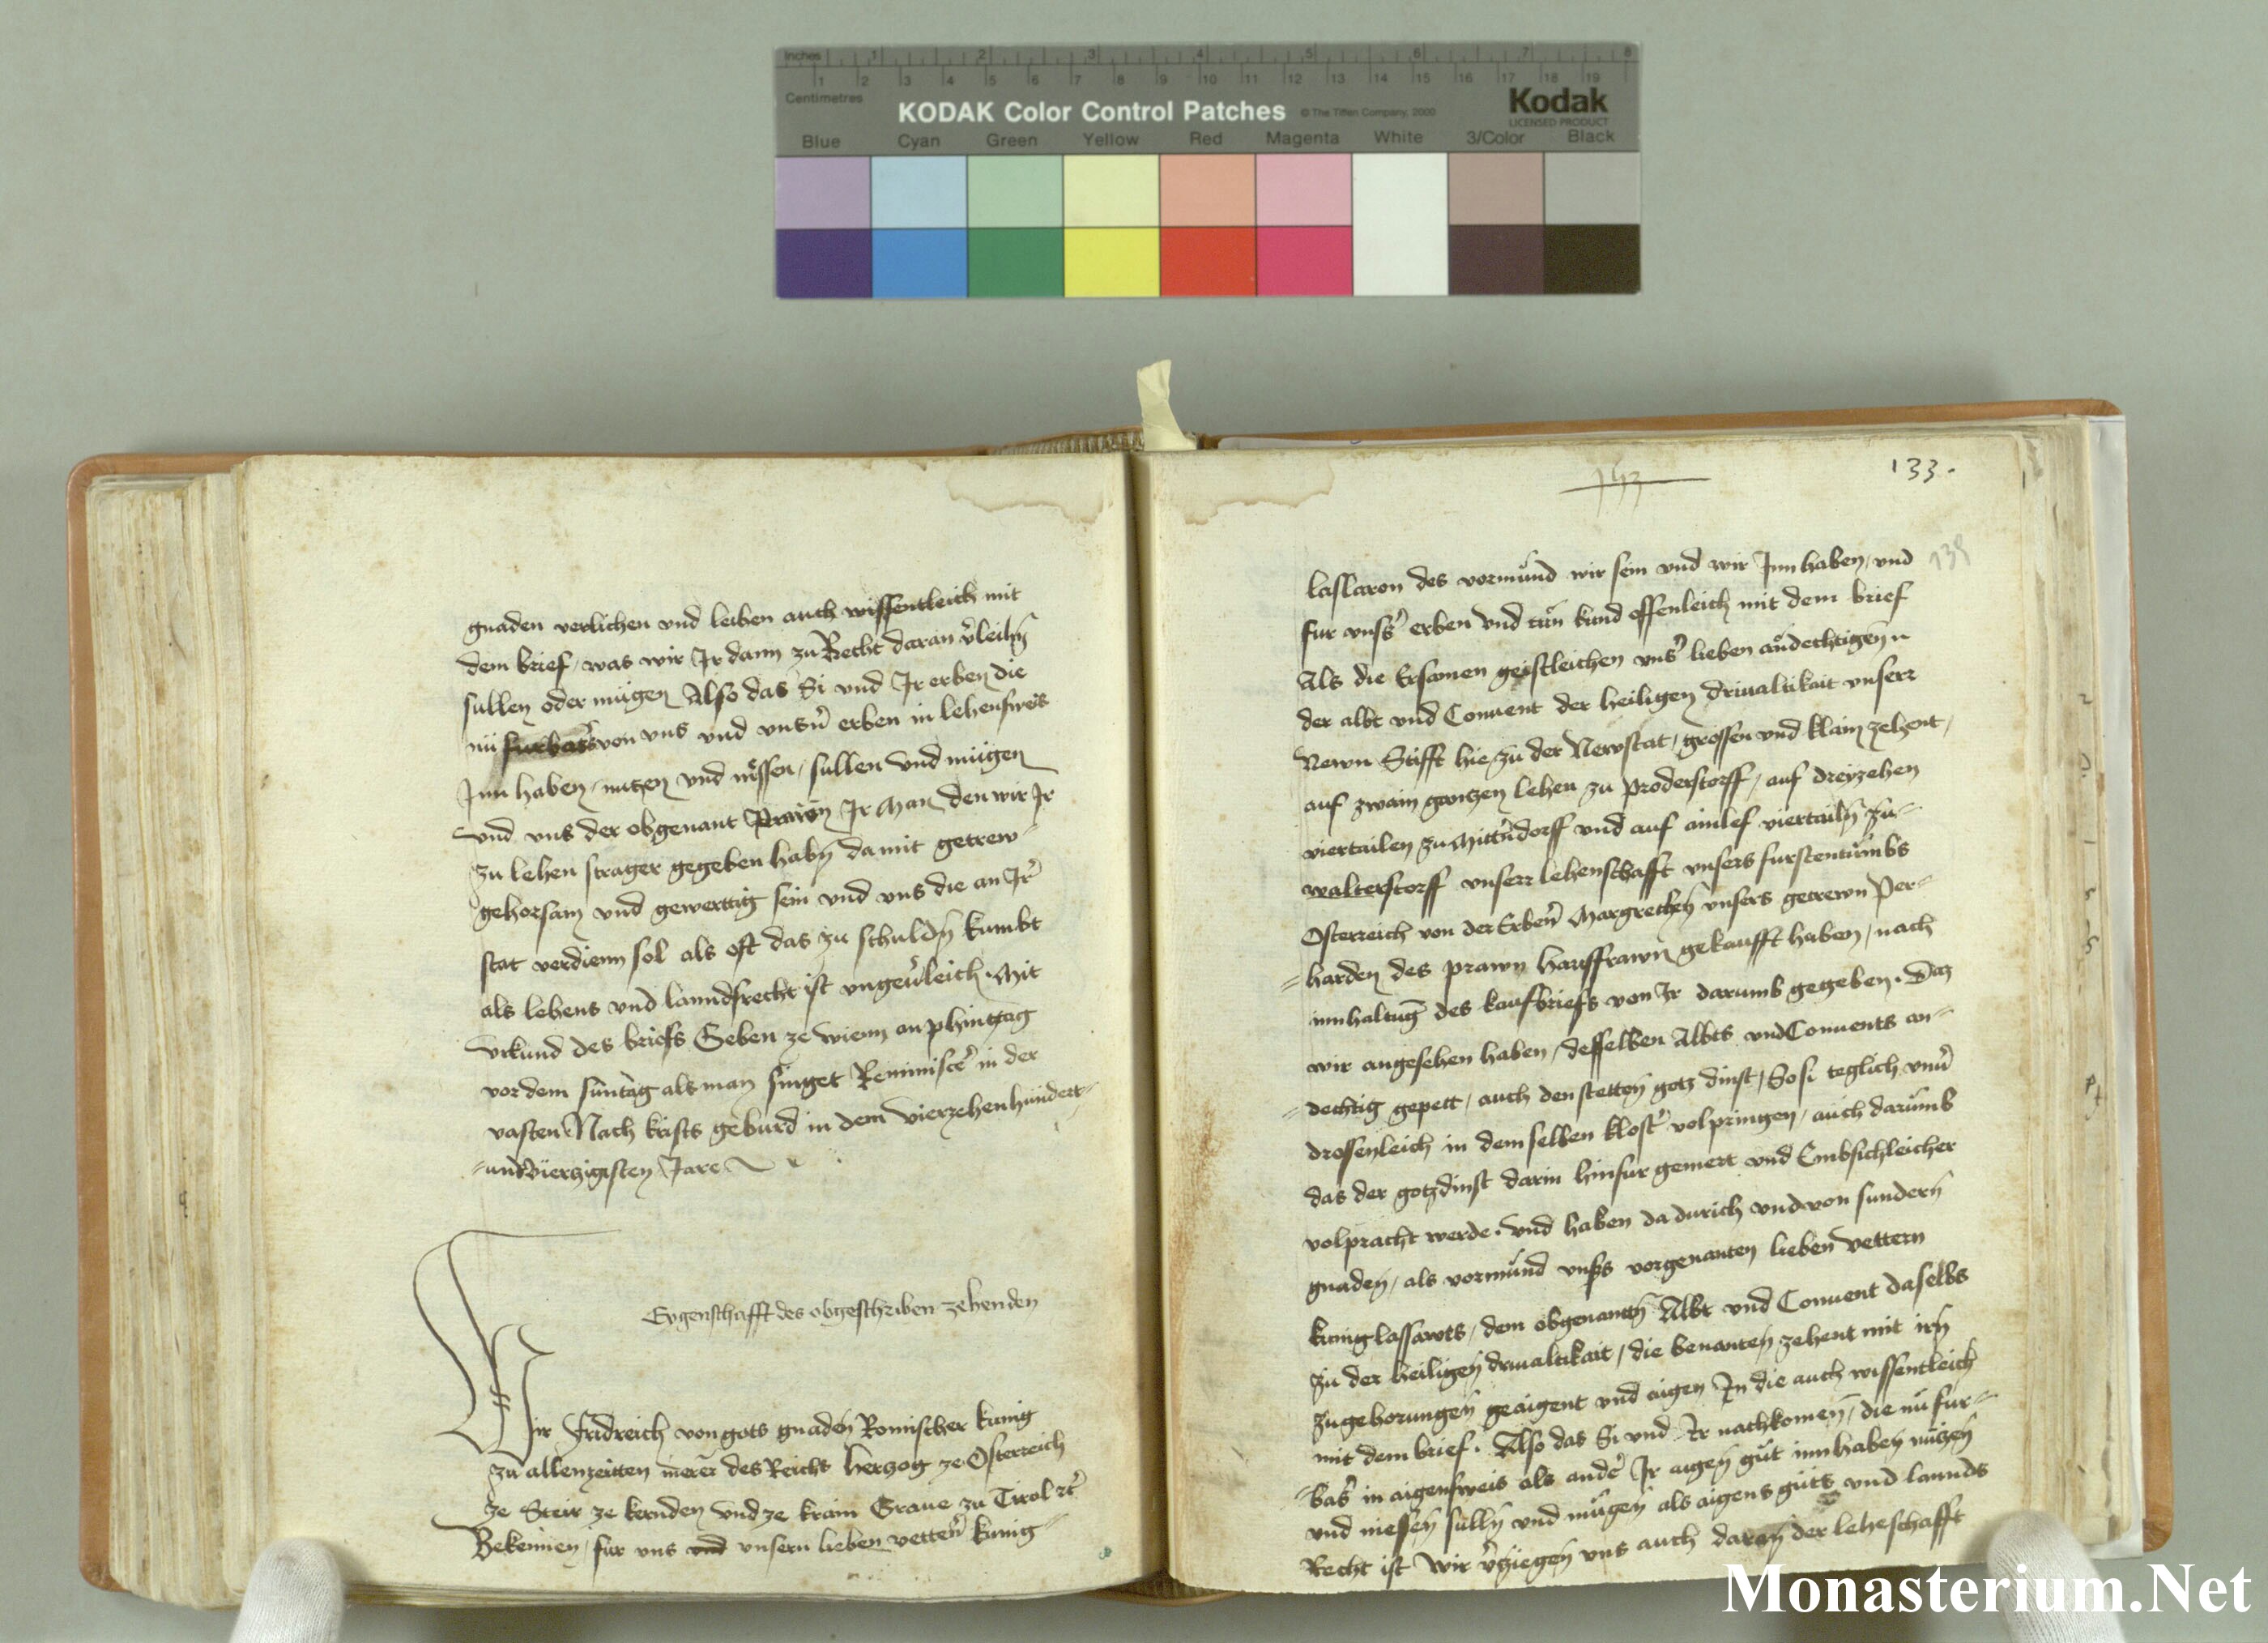 Inches 1 2 3 4 5 6 7 8
1 2 3 4 5 6 7 8 9 10 11 12 13 14 15 16 17 18 19
Centimetres
KODAK Color Control Patches © The Tiffen Company, 2000 Kodak
LICENSED PRODUCT
Blue Cyan Green Yellow Red Magenta White 3/Color Black
gnaden verlichen vnd leihen auch wissentleich mit
dem brief, was wir Ir dann zu Recht daran v̾leihn̄
sullen oder mügen Also das Si vnd Ir erben die
nü furbass von vns vnd vnsn̾ erben in lehensweis
Inn haben, nutzen vnd niessen, sullen vnd mügen
vnd vns der obgenant Prawn Ir man den wir Ir
zu lehen strager gegeben habn̄ damit getrew⸗
gehorsam vnd gewerttig sein vnd vns die an Ir̾
stat verdienn sol als oft das zu schuldn̄ kumbt
als lehens vnd lanndsrecht ist vngeu̾leich. Mit
vrkund des briefs Geben ze wienn an phintztag
vor dem suntag als man singet Reminisce̾ in der
vasten Nach krists geburd in dem vierzehenhundert⸗
⸗undvierzigisten Jare
Eygenschafft des obgeschriben zehenden
Wir Fridreich von gots gnaden Romischer kunig
zu allenzeitten merer des Reichs herzog ze Osterreich
ze Steir ze kernden vnd ze krain Graue zu Tirol rc̾
Bekennen, fur vns vnd vnsern lieben vettern̾ kunig⸗
133.
139
laslawen des vormund wir sein vnd wir Inn haben, vnd
fur vnsr̾ erben vnd tun kund offenleich mit dem brief
Als die Ersamen geistleichen vnsr̾ lieben andechtigen n
der abbt vnd Conuent der heiligen driualtikait vnserr
Newn Stifft hie zu der Newstat, grossen vnd klain zehent,
auf zwain gantzen lehen zu proderstorff, auf dreyzehen
viertailen zu Mittn̾dorff vnd auf ainlef viertailn̄ zu⸗
walterstorff vnserr lehenschafft vnsers furstentumbs
Osterreich von der Erbern̾ Margrethen vnsers getrewn Per⸗
⸗harden des prawn hausfrawn gekaufft haben, nach
innhaltuḡ des kaufbriefs von Ir darumb gegeben. Daz
wir angesehen haben, desselben Abbts vnd Conuents an⸗
⸗dechtig gepett, auch den stetten gotz dinst, So si teglich vnu̾
drossenleich in demselben klostr̾ volpringen, auch darumb
das der gotzdinst darin hinfur gemert vnd Embsichleicher
volpracht werde. vnd haben dadurich vnd von sundern
gnaden, als vormund vnsers vorgenanten lieben vettern
kunig lasslawts, dem obgenanten Abbt vnd Conuent daselbs
zu der heiligen driualtikait, die benanten zehent mit irn̄
zugehorungen geaigent vnd aigen In die auch wissentleich
mit dem brief. Also das Si vnd Ir nachkomen, die nu fur⸗
⸗bas̾ in aigensweis als ander̾ Ir aigen gut innhaben nutzen
vnd niessen sulln̄ vnd mugen als aigens guts vnd lannds
Recht ist Wir v̾zeigen vns auch daran der leheschafft
Monasterium.Net